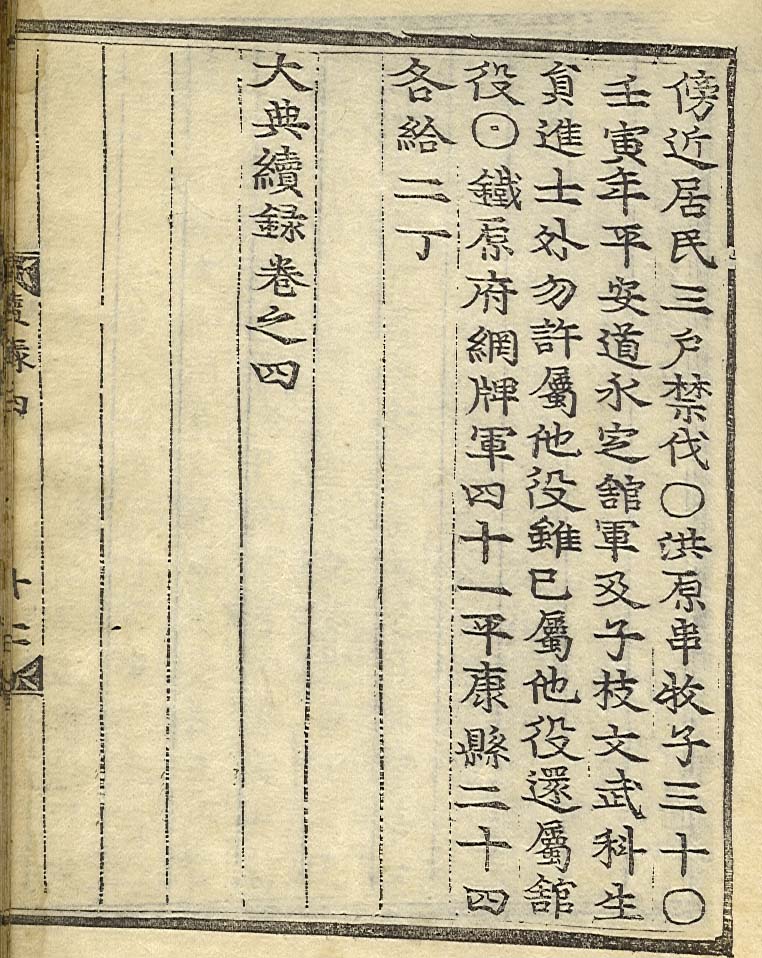 傍近居民三戶禁伐〇洪原串牧子三十〇
壬寅年平安道永定舘軍及子枝文武科生
員進士外勿許屬他役雖已屬他役還屬舘
役〇鐵原府網牌軍四十一平康縣二十四
各給二丁
大典續录卷之四
十二